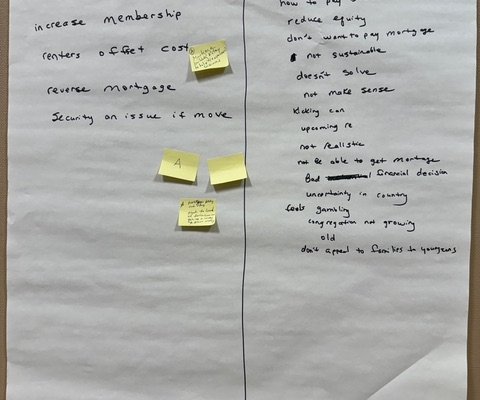 increase membership
renters offset cost
reverse mortgage
Security an issue if move
A
how to pay
reduce equity
don't want to pay mortgage
not sustainable
doesn't solve
not make sense
kicking can
upcoming re
not realistic
not be able to get mortage
Bad financial decision
uncertainty in country
feels gambling
congregation not growing
old
don't appeal to families to youngens